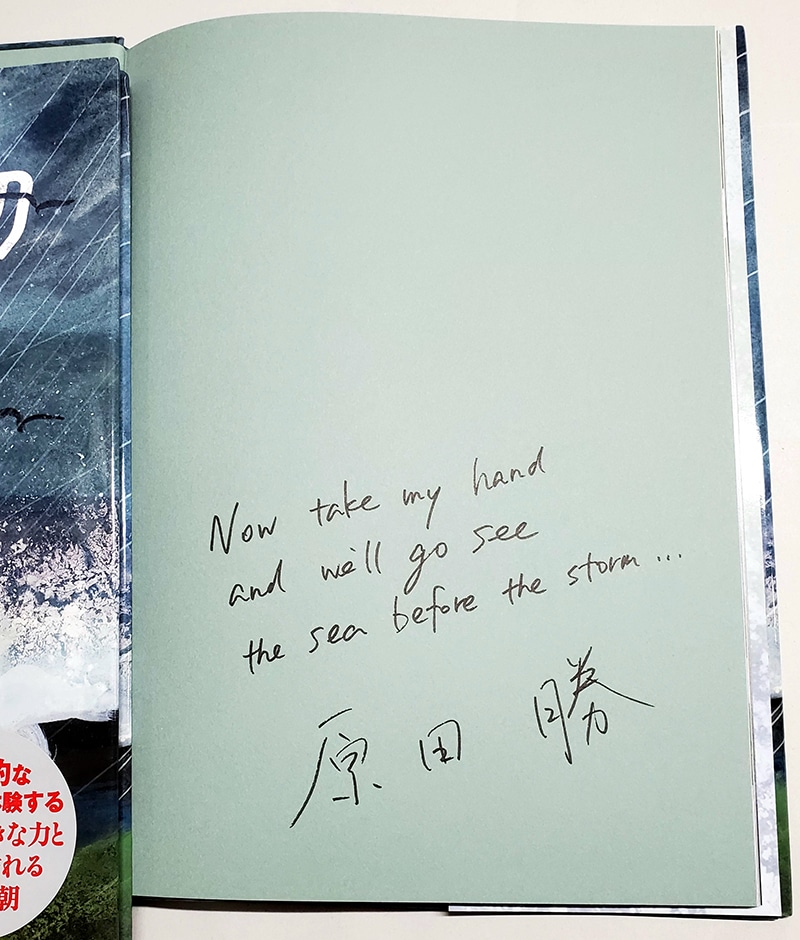 Now take my hand
and we'll go see
the sea before the storm...
原田 勝
的な
体験する
きな力と
れる
朝